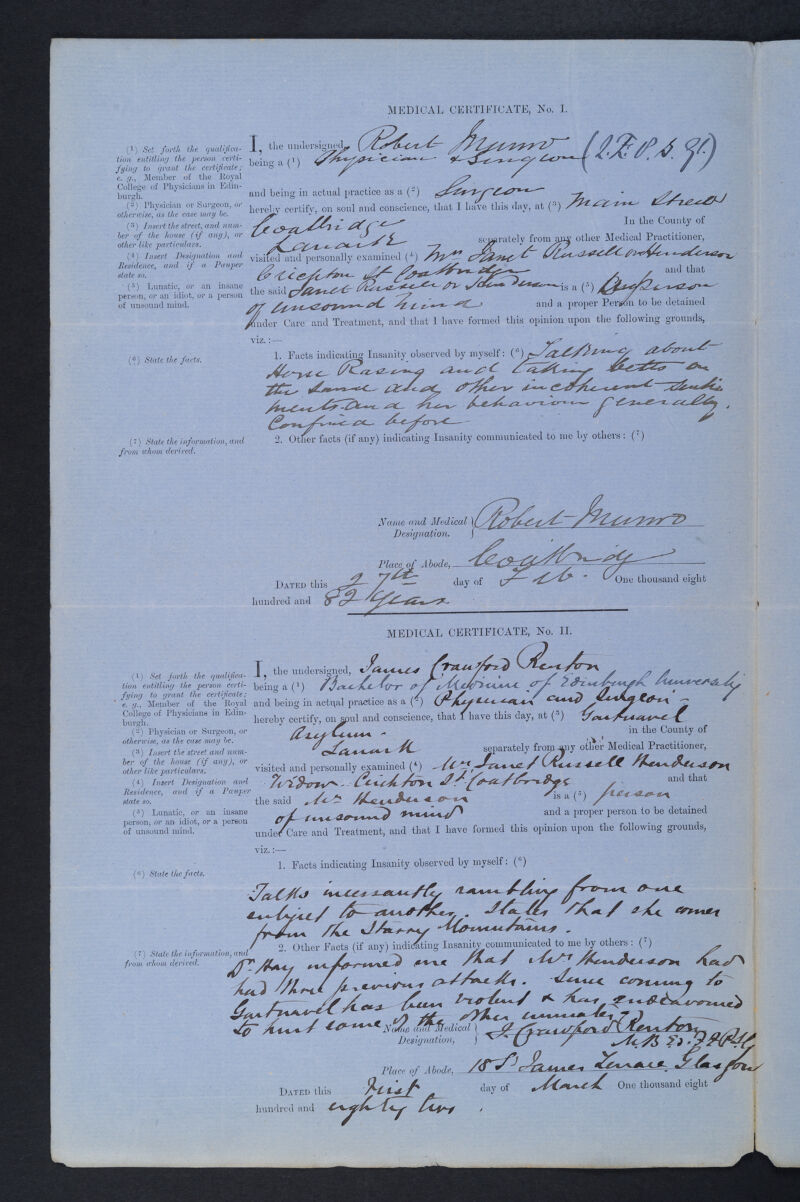 MEDICAL CERTIFICATE, No. I.
(1) Set forth the qualifica-
tion entitling the person certi-
fying to grant the certificate;
e. g., Member of the Royal
College of Physicians in Edin-
burgh.
(2) Physician or Surgeon, or
otherwise, as the case may be.
(3) Insert the street, and num-
ber of the house (if any), or
other like particulars.
(4) Insert Designation and
Residence, and if a Pauper
state so.
(5) Lunatic, or an insane
person, or an idiot, or a person
of unsound mind.
I, the undersigned, Robert Munro
being a (1) Physician & Surgeon (L.F.P.S. Gl.)
and being in actual practice as a (2) Surgeon
hereby certify, on soul and conscience, that I have this day, at (3) Main Street
Coatbridge In the County of
Lanark separately from any other Medical Practitioner,
visited and personally examined (4) Mrs Janet Russell or Henderson
Crichton St Coatbridge and that
the said Janet Russell or Henderson is a (5) person
of unsound mind and a proper Person to be detained
under Care and Treatment, and that I have formed this opinion upon the following grounds,
viz.:—
(6) State the facts.
1. Facts indicating Insanity observed by myself: (6) Talking about
Horse Rasing and taking betts on
the same and other incoherent senti
ments and her behaviour generally.
Confined before
(7) State the information, and
from whom derived.
2. Other facts (if any) indicating Insanity communicated to me by others: (7)
Name and Medical
Designation. Robert Munro
Place of Abode, Coatbridge
DATED this 27th day of Feb. One thousand eight
hundred and 82 years
MEDICAL CERTIFICATE, No. II.
(1) Set forth the qualifica-
tion entitling the person certi-
fying to grant the certificate;
e. g., Member of the Royal
College of Physicians in Edin-
burgh.
(2) Physician or Surgeon, or
otherwise, as the case may be.
(3) Insert the street and num-
ber of the house (if any), or
other like particulars.
(4) Insert Designation and
Residence, and if a Pauper
state so.
(5) Lunatic, or an insane
person, or an idiot, or a person
of unsound mind.
I, the undersigned, James Crawford Renton
being a (1) Bachelor of Medicine of Edinburgh University
and being in actual practice as a (2) Physician and Surgeon
hereby certify, on soul and conscience, that I have this day, at (3) Gartnavel
Asylum. in the County of
Lanark separately from any other Medical Practitioner,
visited and personally examined (4) Mrs Janet Russell Henderson
Widow. Crichton St, Coatbridge and that
the said Mrs Henderson is a (5) person
of unsound mind and a proper person to be detained
under Care and Treatment, and that I have formed this opinion upon the following grounds,
viz.:—
1. Facts indicating Insanity observed by myself: (6)
(6) State the facts.
Talks incessantly rambling from one
subject to another. States that she comes
from the Starry Mountains.
(7) State the information, and
from whom derived.
2. Other Facts (if any) indicating Insanity communicated to me by others: (7)
Dr Hay informed me that Mrs Henderson had
had three previous attacks. Since coming to
Gartnavel has been violent & has endeavoured
to hurt some of the other inmates.
Name and Medical
Designation, J. Crawford Renton
M.B. Ed.
Place of Abode, 18 St James Terrace, Glasgow
DATED this First day of March One thousand eight
hundred and eighty two.